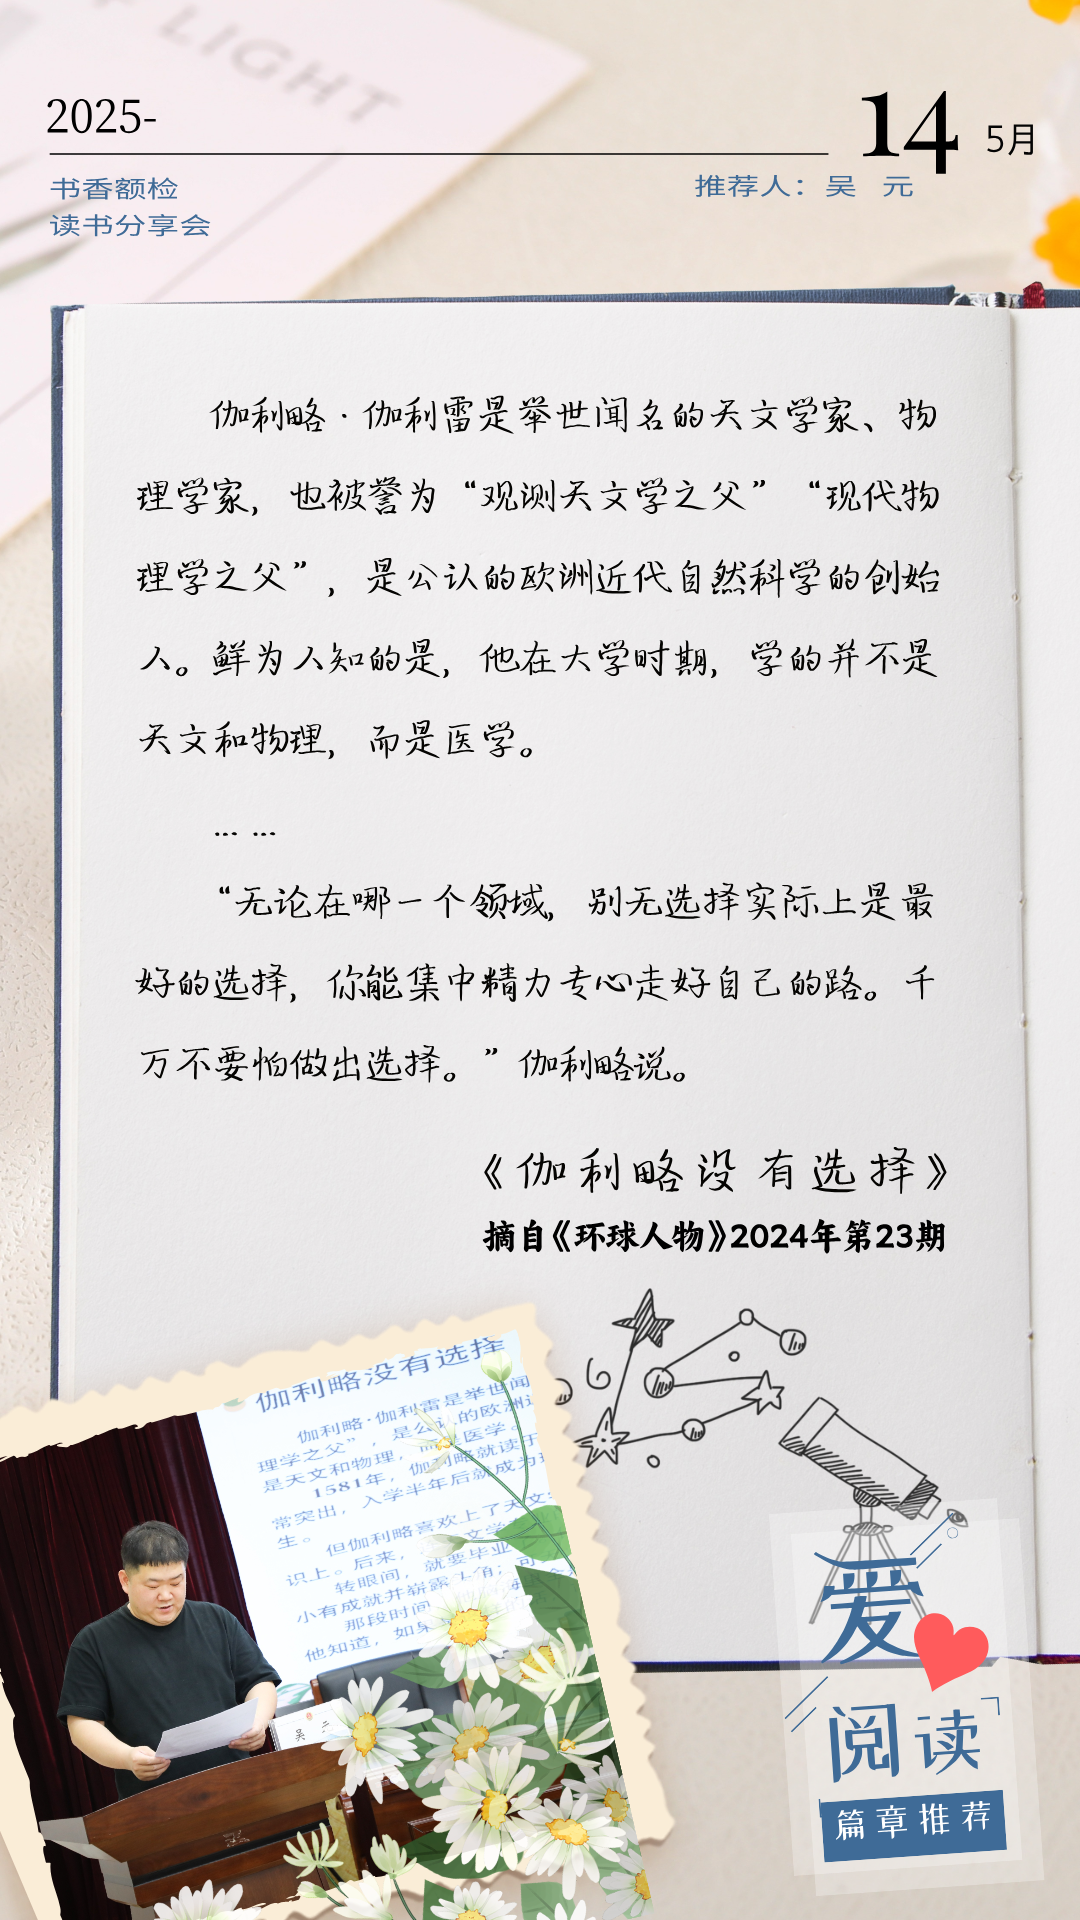 LIGHT
2025-
14 5月
书香额检
读书分享会
推荐人：吴 元
伽利略·伽利雷是举世闻名的天文学家、物
理学家，也被誉为“观测天文学之父”“现代物
理学之父”，是公认的欧洲近代自然科学的创始
人。鲜为人知的是，他在大学时期，学的并不是
天文和物理，而是医学。
... ...
“无论在哪一个领域，别无选择实际上是最
好的选择，你能集中精力专心走好自己的路。千
万不要怕做出选择。”伽利略说。
《伽利略没有选择》
摘自《环球人物》2024年第23期
伽利略没有选择
伽利略·伽利雷是举世闻
理学之父”，是公认的欧洲近
是天文和物理，而是医学。
1581年，伽利略就读于
常突出，入学半年后就成为
生。
但伽利略喜欢上了天文
识上。后来，
转眼间，就要毕业
小有成就并崭露头角；
那段时间
他知道，如
吴 元
爱
阅读
篇章推荐